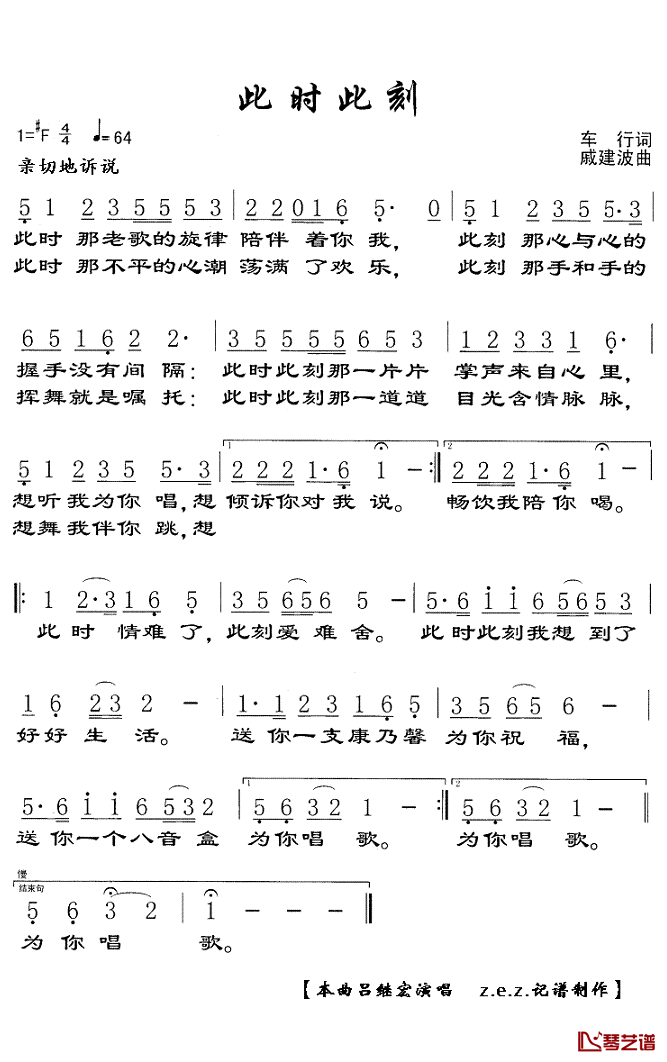 此时此刻
1=#F 4/4 ♩=64
车 行词
戚建波曲
亲切地诉说
5 1 2 3 5 5 5 3 | 2 2 0 1 6 5· 0 | 5 1 2 3 5 5 5·3
此时 那老歌的旋律 陪伴 着你我, 此刻 那心与心的
此时 那不平的心潮 荡满 了欢乐, 此刻 那手和手的
6 5 1 6 2 2· | 3 5 5 5 5 6 5 3 | 1 2 3 3 1 6·
握手没有间 隔: 此时此刻那一片片 掌声来自心 里,
挥舞就是嘱 托: 此时此刻那一道道 目光含情脉 脉,
1 2
5 1 2 3 5 5·3 | 2 2 2 1·6 1 – :| 2 2 2 1·6 1 –
想听我为你 唱,想 倾诉你对我 说。 畅饮我陪你 喝。
想舞我伴你 跳,想
|: 1 2·3 1 6 5 | 3 5 6 5 6 5 – | 5·6 1 1 6 5 6 5 3
此 时 情难了,此刻爱 难 舍。 此时此刻我想 到了
1 6 2 3 2 – | 1· 1 2 3 1 6 5 | 3 5 6 5 6 –
好好 生 活。 送 你一支康乃馨 为你祝 福,
1 2
5·6 1 1 6 5 3 2 | 5 6 3 2 1 – :| 5 6 3 2 1 –
送 你一个八音 盒 为你唱 歌。 为你唱 歌。
慢
结束句
5 6 3 2 | 1 – – –
为 你 唱 歌。
【本曲吕继宏演唱 z.e.z.记谱制作】
琴艺谱